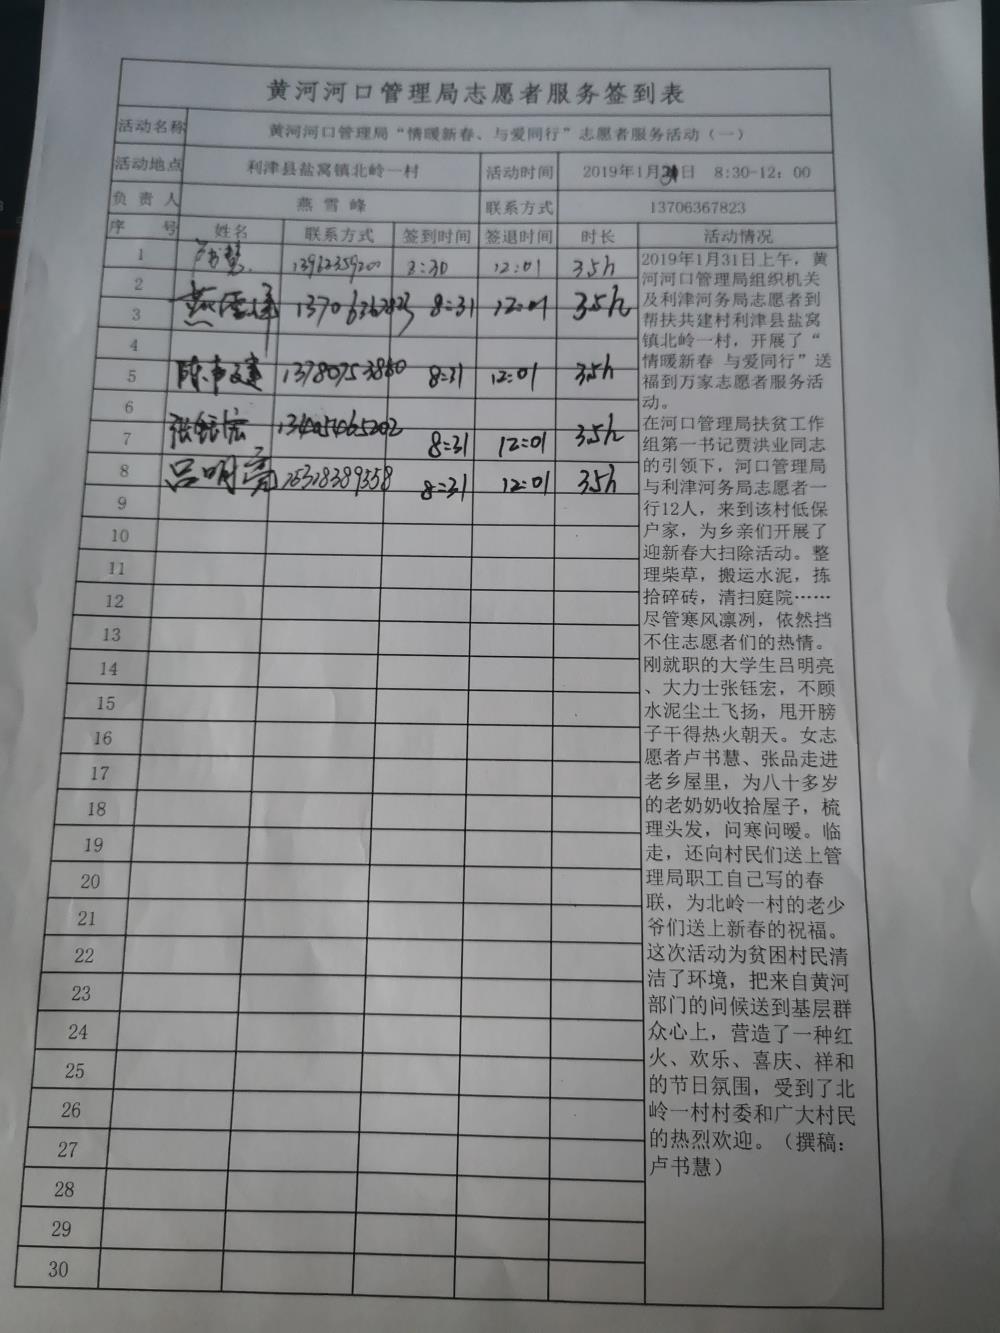 黄河河口管理局志愿者服务签到表
活动名称 黄河河口管理局“情暖新春、与爱同行”志愿者服务活动（一）
活动地点 利津县盐窝镇北岭一村 活动时间 2019年1月31日 8:30-12：00
负责人 燕雪峰 联系方式 13706367823
序号 姓名 联系方式 签到时间 签退时间 时长 活动情况
1 卢书慧 8:30 12:01 3.5h
2
3 燕雪峰 13706367823 8:31 12:01 3.5h
4
5 13780753880 8:31 12:01 3.5h
6
7 张钰宏 13405465202 8:31 12:01 3.5h
8 吕明亮 8:31 12:01 3.5h
9
10
11
12
13
14
15
16
17
18
19
20
21
22
23
24
25
26
27
28
29
30
2019年1月31日上午，黄
河河口管理局组织机关
及利津河务局志愿者到
帮扶共建村利津县盐窝
镇北岭一村，开展了“
情暖新春 与爱同行”送
福到万家志愿者服务活
动。
在河口管理局扶贫工作
组第一书记贾洪业同志
的引领下，河口管理局
与利津河务局志愿者一
行12人，来到该村低保
户家，为乡亲们开展了
迎新春大扫除活动。整
理柴草，搬运水泥，拣
拾碎砖，清扫庭院……
尽管寒风凛冽，依然挡
不住志愿者们的热情。
刚就职的大学生吕明亮
、大力士张钰宏，不顾
水泥尘土飞扬，甩开膀
子干得热火朝天。女志
愿者卢书慧、张品走进
老乡屋里，为八十多岁
的老奶奶收拾屋子，梳
理头发，问寒问暖。临
走，还向村民们送上管
理局职工自己写的春
联，为北岭一村的老少
爷们送上新春的祝福。
这次活动为贫困村民清
洁了环境，把来自黄河
部门的问候送到基层群
众心上，营造了一种红
火、欢乐、喜庆、祥和
的节日氛围，受到了北
岭一村村委和广大村民
的热烈欢迎。（撰稿：
卢书慧）